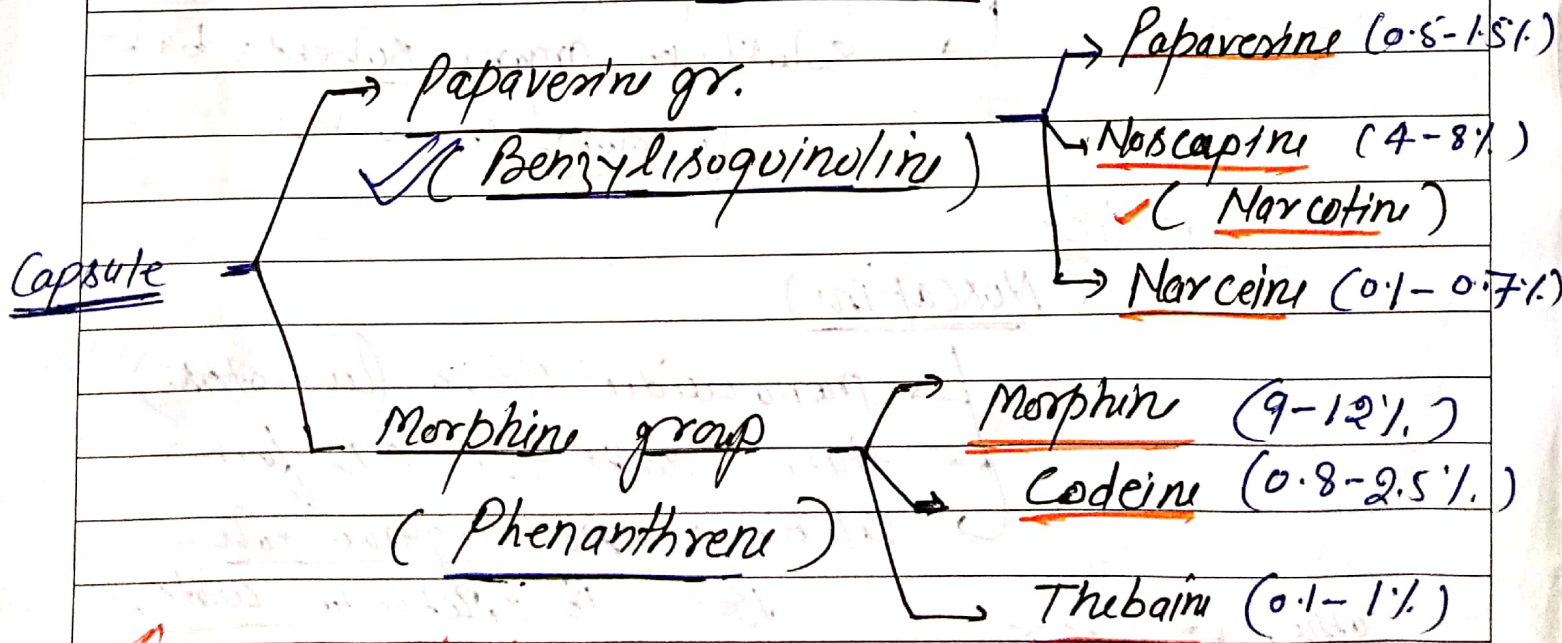 Capsule
Papaverine gr.
(Benzylisoquinoline)
Papaverine (0.5-1.5%)
Noscapine (4-8%)
(Narcotine)
Narceine (0.1-0.7%)
Morphine group
(Phenanthrene)
Morphine (9-12%)
Codeine (0.8-2.5%)
Thebaine (0.1-1%)